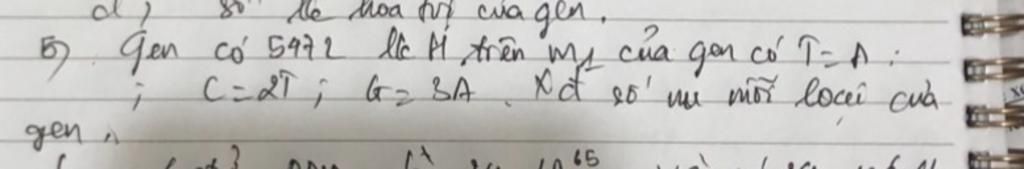 d) số lk hoá trị của gen.
5) Gen có 5472 lk H, trên m1 của gen có T = A
; C = 2T ; G = 3A. Xđ số nu mỗi loại của
gen.
65